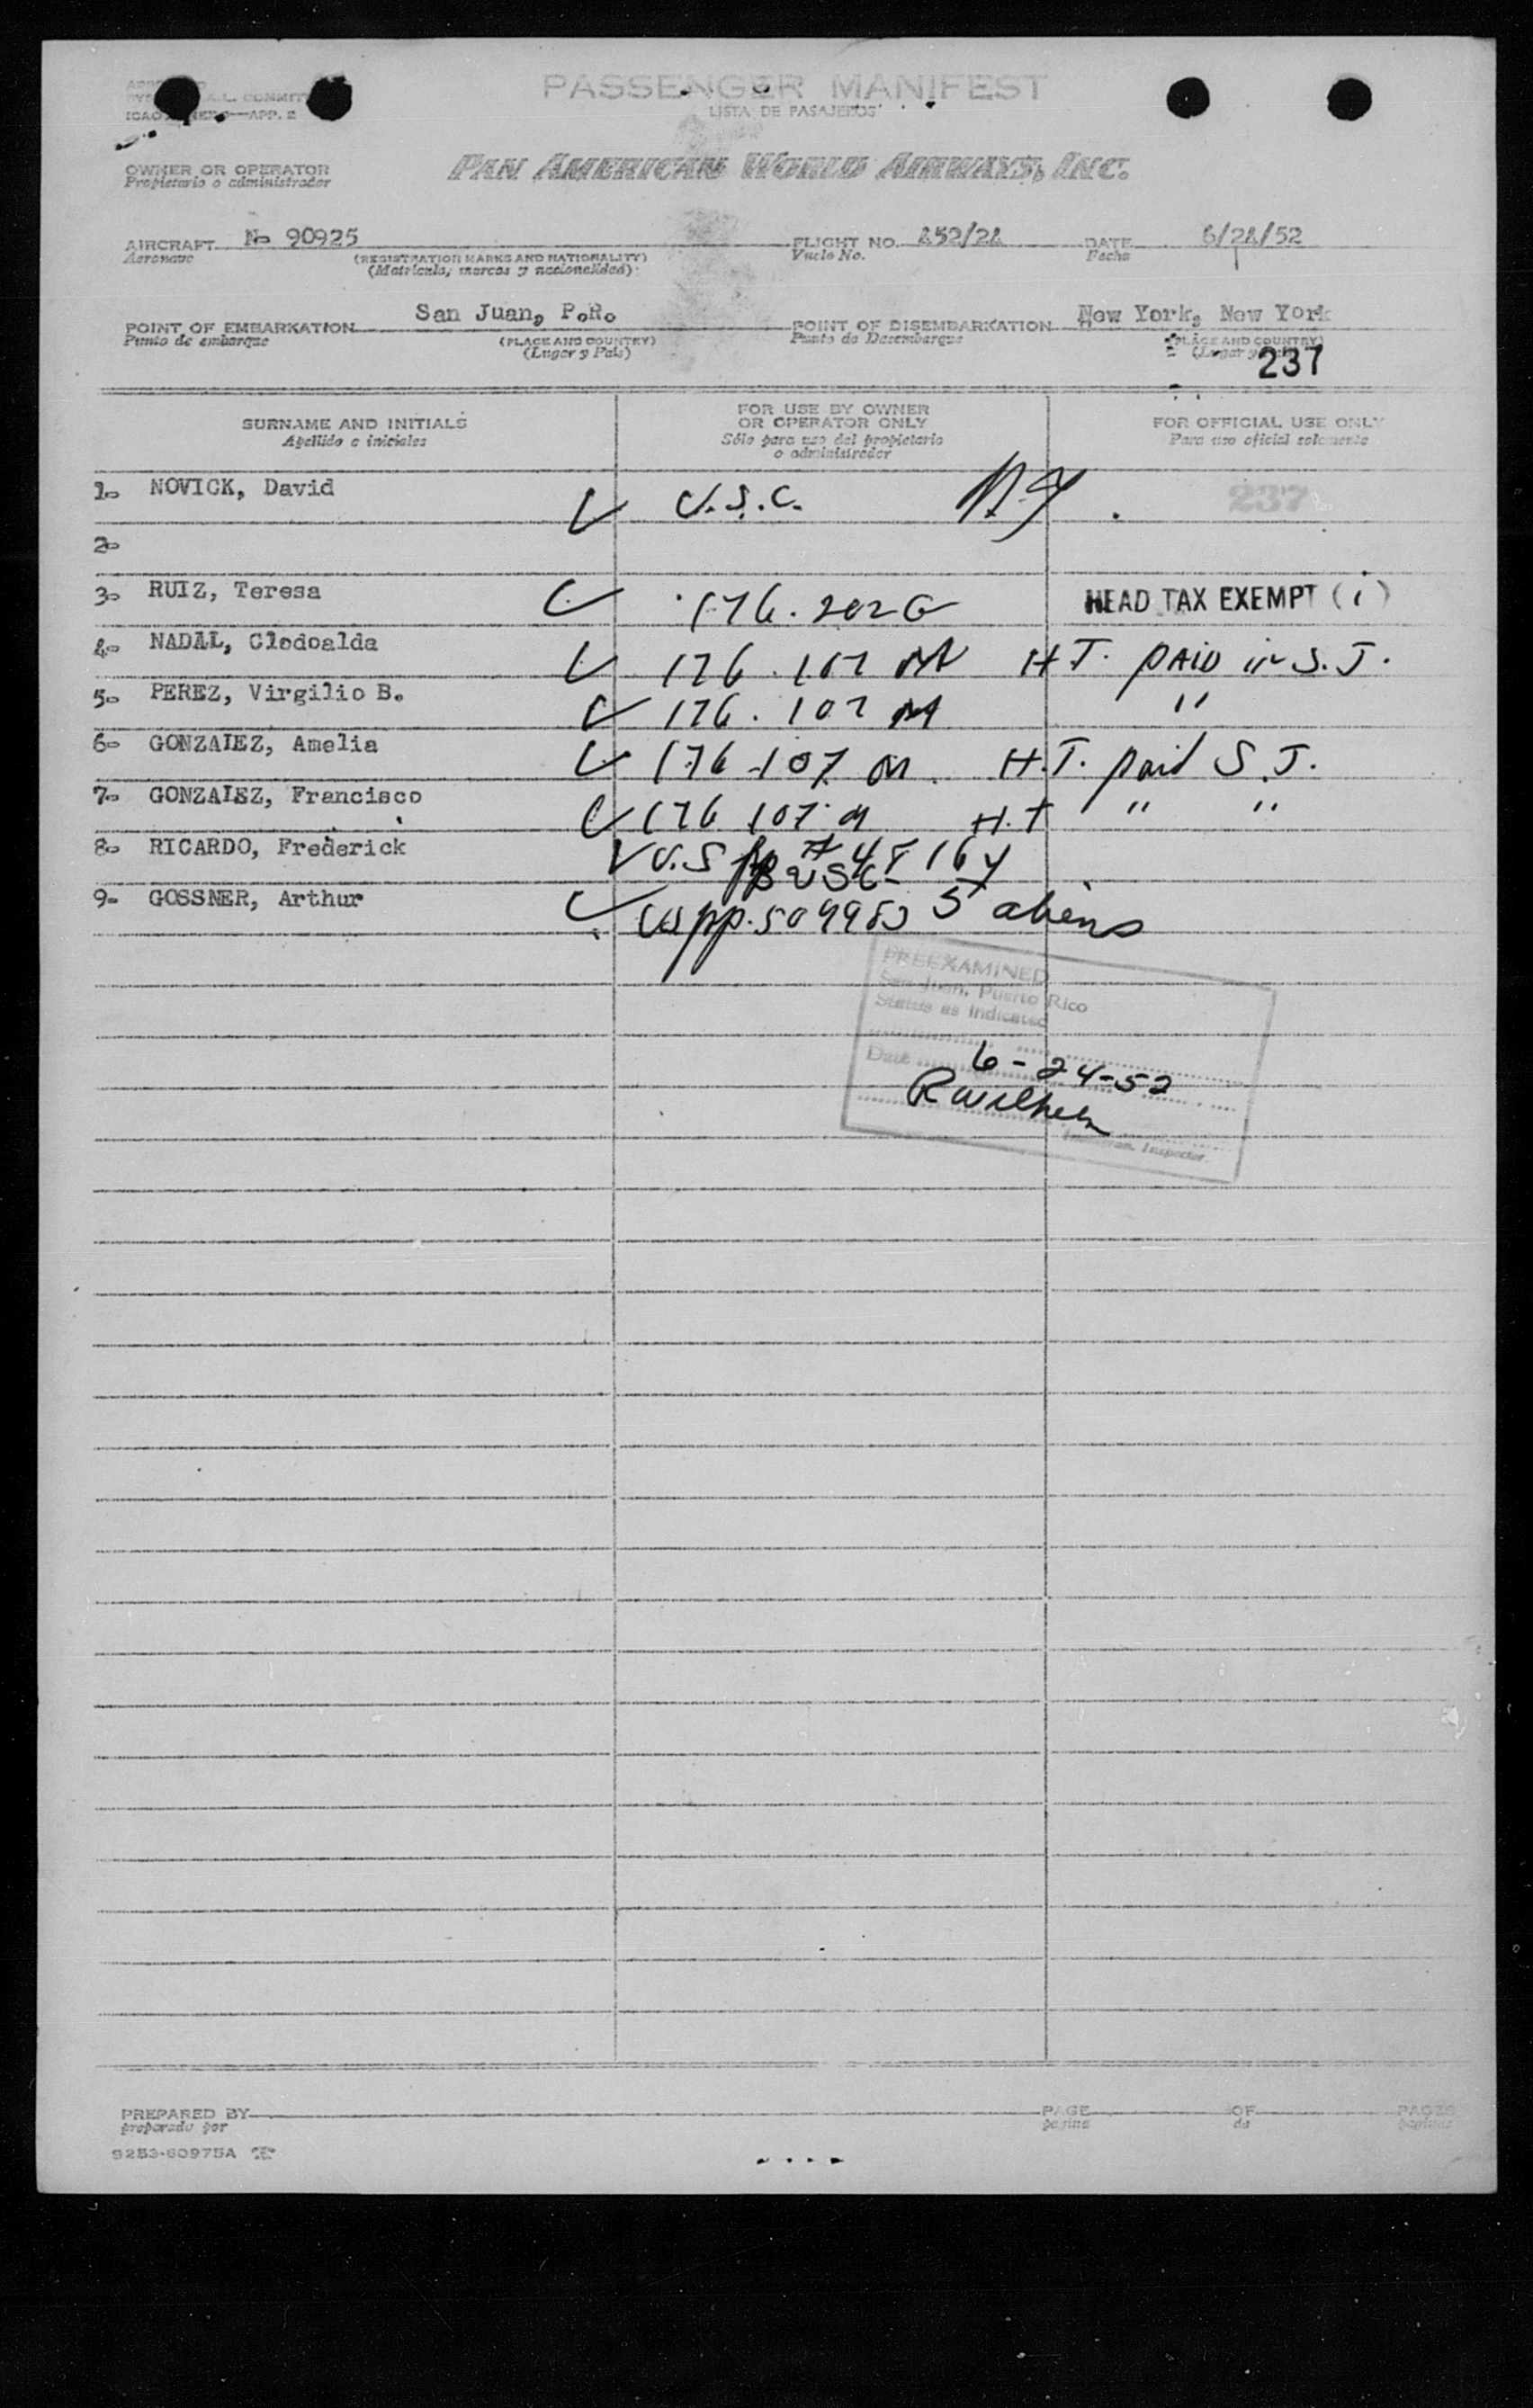 PASSENGER MANIFEST
LISTA DE PASAJEROS
ICAO APP. 2
OWNER OR OPERATOR
Propietario o administrador
PAN AMERICAN WORLD AIRWAYS, INC.
AIRCRAFT N- 90925 FLIGHT NO. 452/24 DATE 6/24/52
Aeronave (REGISTRATION MARKS AND NATIONALITY) Vuelo No. Fecha
(Matricula, marcas y nacionalidad)
POINT OF EMBARKATION San Juan, P.R. POINT OF DISEMBARKATION New York, New York
Punto de embarque (PLACE AND COUNTRY) Punto de Desembarque (PLACE AND COUNTRY)
(Lugar y País)
237
SURNAME AND INITIALS FOR USE BY OWNER OR OPERATOR ONLY FOR OFFICIAL USE ONLY
Apellido e iniciales Sólo para uso del propietario o administrador Para uso oficial solamente
1- NOVICK, David U.S.C. N.Y. 237
2-
3- RUIZ, Teresa 176.202G HEAD TAX EXEMPT (i)
4- NADAL, Clodoalda 176.107 M H T. PAID in S.J.
5- PEREZ, Virgilio B. 176.107 M "
6- GONZALEZ, Amelia 176-107 M. H.T. paid S.J.
7- GONZALEZ, Francisco 176 107 M H.T " "
8- RICARDO, Frederick U.S pp # 48164
USC
9- GOSSNER, Arthur US pp. 509983 5 aliens
PREEXAMINED
San Juan, Puerto Rico
Status as Indicated
Date 6-24-52
Immigrant Inspector
PREPARED BY PAGE OF PAGES
preparado por pagina de paginas
9253-60975A